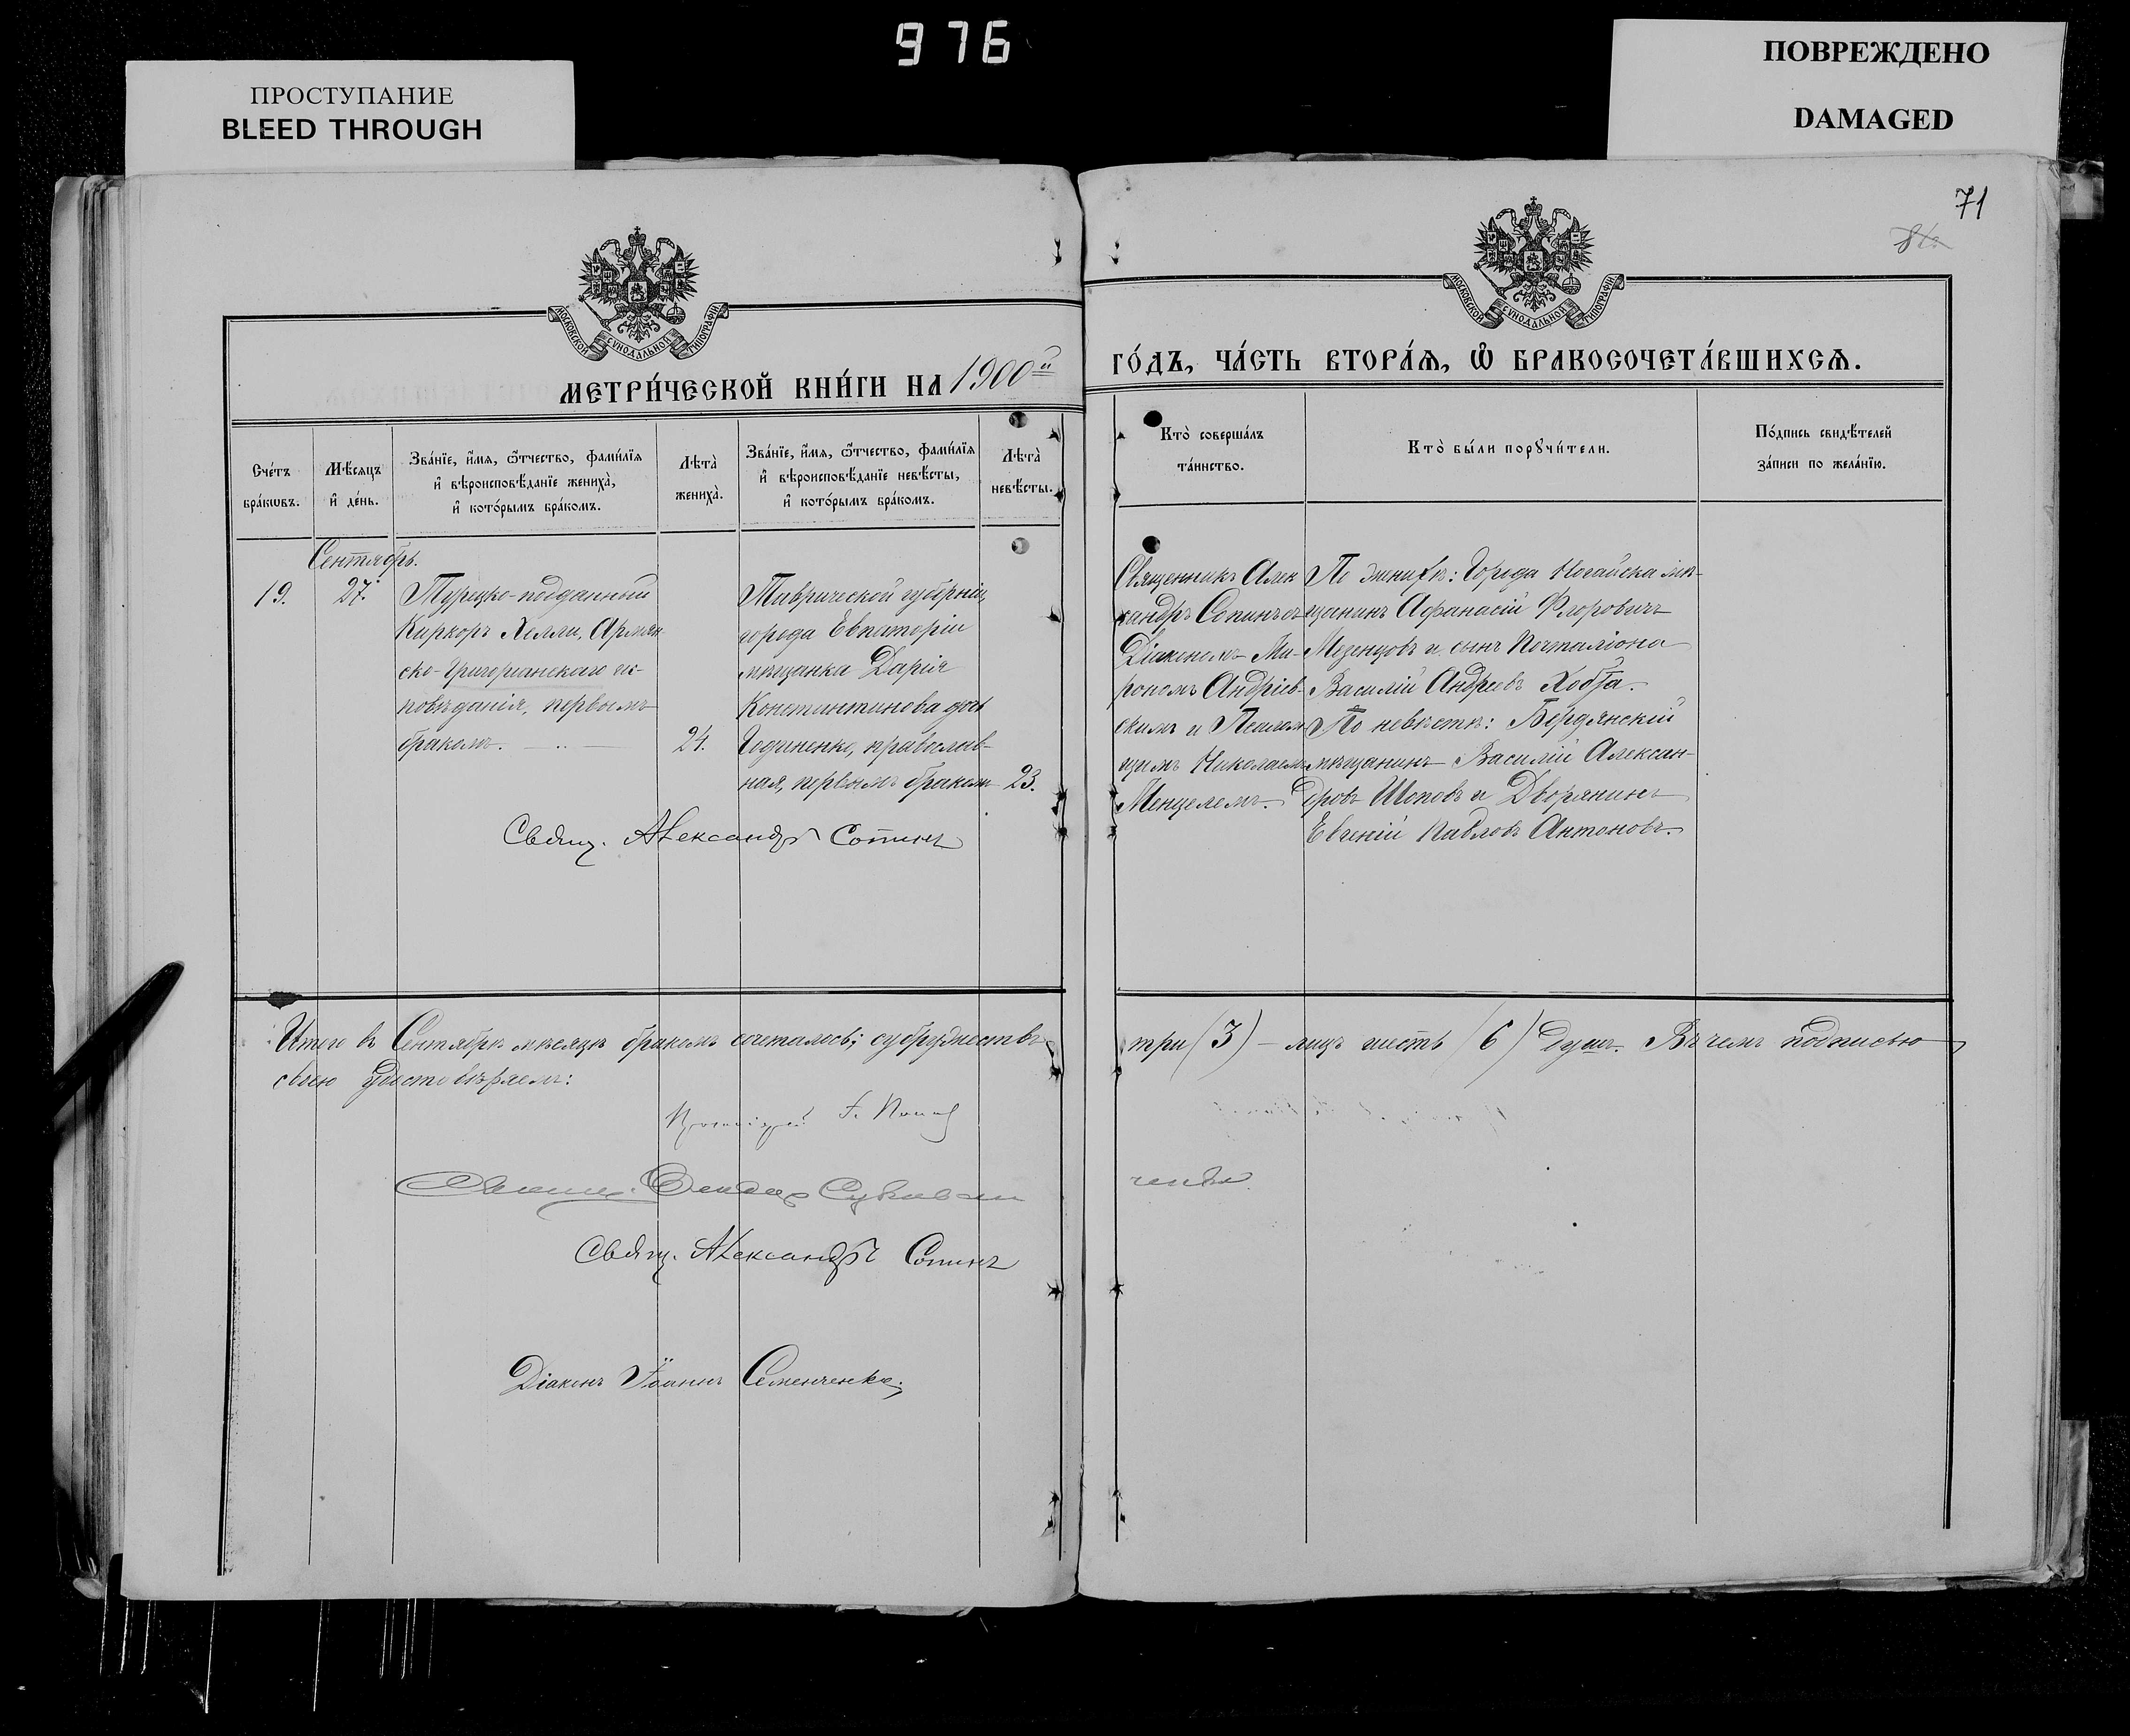 976
ПРОСТУПАНИЕ
BLEED THROUGH
ПОВРЕЖДЕНО
DAMAGED
71
МОСКОВСКОЙ СУНОДАЛЬНОЙ ТИПОГРАФІИ
МОСКОВСКОЙ СУНОДАЛЬНОЙ ТИПОГРАФІИ
МЕТРИ́ЧЕСКОЙ КНИ́ГИ НА 1900й
ГО́ДЪ, ЧА́СТЬ ВТОРА́Я, Ѡ҆ БРАКОСОЧЕТА́ВШИХСЯ.
Сче́тъ
бра́кѡвъ.
Мѣ́сяцъ
и҆ де́нь.
Зва́нїе, и҆́мя, ѻ҆́тчество, фами́лїя
и҆ вѣроисповѣ́данїе жениха̀,
и҆ кото́рымъ бра́комъ.
Лѣта̀
жениха̀.
Зва́нїе, и҆́мя, ѻ҆́тчество, фами́лїя
и҆ вѣроисповѣ́данїе невѣ́сты,
и҆ кото́рымъ бра́комъ.
Лѣта̀
невѣ́сты.
Кто̀ соверша́лъ
та́инство.
Кто̀ бы́ли порꙋчи́тели.
По́дпись свидѣ́телей
за́писи по жела́нїю.
Сентябрь.
19.
27.
Турецко-подданный
Киркоръ Хелли, Армян-
ско-Григорianскаго ис-
повѣданія, первымъ
бракомъ.
24.
Таврической губерніи,
города Евпаторіи
мѣщанка Дарія
Константинова дочь
православ-
ная, первымъ бракомъ
23.
Священникъ Алек
сандръ Сопинъ съ
Діакономъ Ми-
рономъ Андріев-
скимъ и Псалом
щикъ Николаемъ
Менцелемъ.
По женихѣ: Города Ногайска мѣ-
щанинъ Афанасій Флоровичъ
Мезенцовъ и сынъ Почталіона
Василій Андреевъ Хобта.
По невѣстѣ: Бердянскій
мѣщанинъ Василій Алексан-
дровъ Шоповъ и Дворянинъ
Евгеній Павловъ Антоновъ.
Свящ. Александръ Сопинъ
Итого въ Сентябрѣ мѣсяцѣ бракомъ сочеталось; супружествъ
три (3) – лицъ шесть (6) душъ. Въ чемъ подписью
своею удостовѣряемъ:
Протоіерей
Свящ. Александръ Сопинъ
Діаконъ Іоаннъ Семенченко.